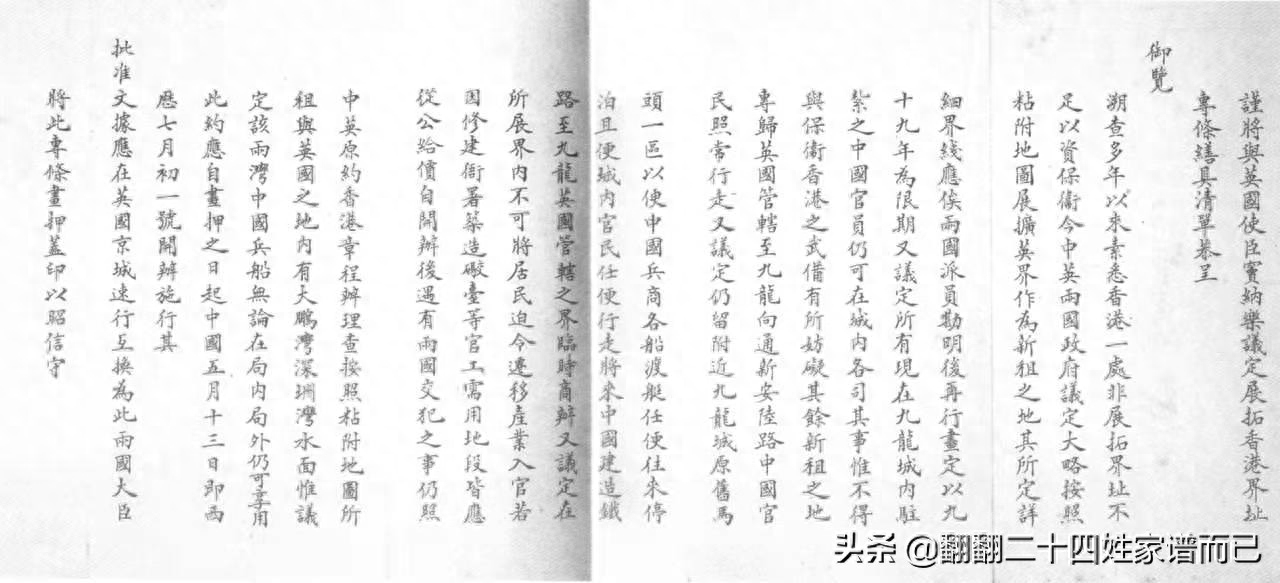 謹將與英國使臣竇納樂議定展拓香港界址
專條繕具清單恭呈
御覽
朔查多年以來素悉香港一處非展拓界址不
足以資保衞今中英兩國政府議定大略按照
粘附地圖展擴英界作為新租之地其所定詳
細界綫應俟兩國派員勘明後再行畫定以九
十九年為限期又議定所有現在九龍城內駐
紮之中國官員仍可在城內各司其事惟不得
與保衞香港之武備有所妨礙其餘新租之地
專歸英國管轄至九龍向通新安陸路中國官
民照常行走又議定仍留附近九龍城原舊馬
頭一區以便中國兵商各船渡艇任便往來停
泊且便城內官民任便行走將來中國建造鐵
路至九龍英國管轄之界臨時商辦又議定在
所展界內不可將居民迫令遷移產業入官若
因修建衙署築造礮臺等官工需用地段皆應
從公給價自開辦後遇有兩國交犯之事仍照
中英原約香港章程辦理查按照粘附地圖所
租與英國之地內有大鵬灣深圳灣水面惟議
定該兩灣中國兵船無論在局內局外仍可享用
此約應自畫押之日起中國五月十三日即西
歷七月初一號開辦施行其
批准文據應在英國京城速行互換為此兩國大臣
將此專條畫押蓋印以昭信守
头条 @翻翻二十四姓家谱而已